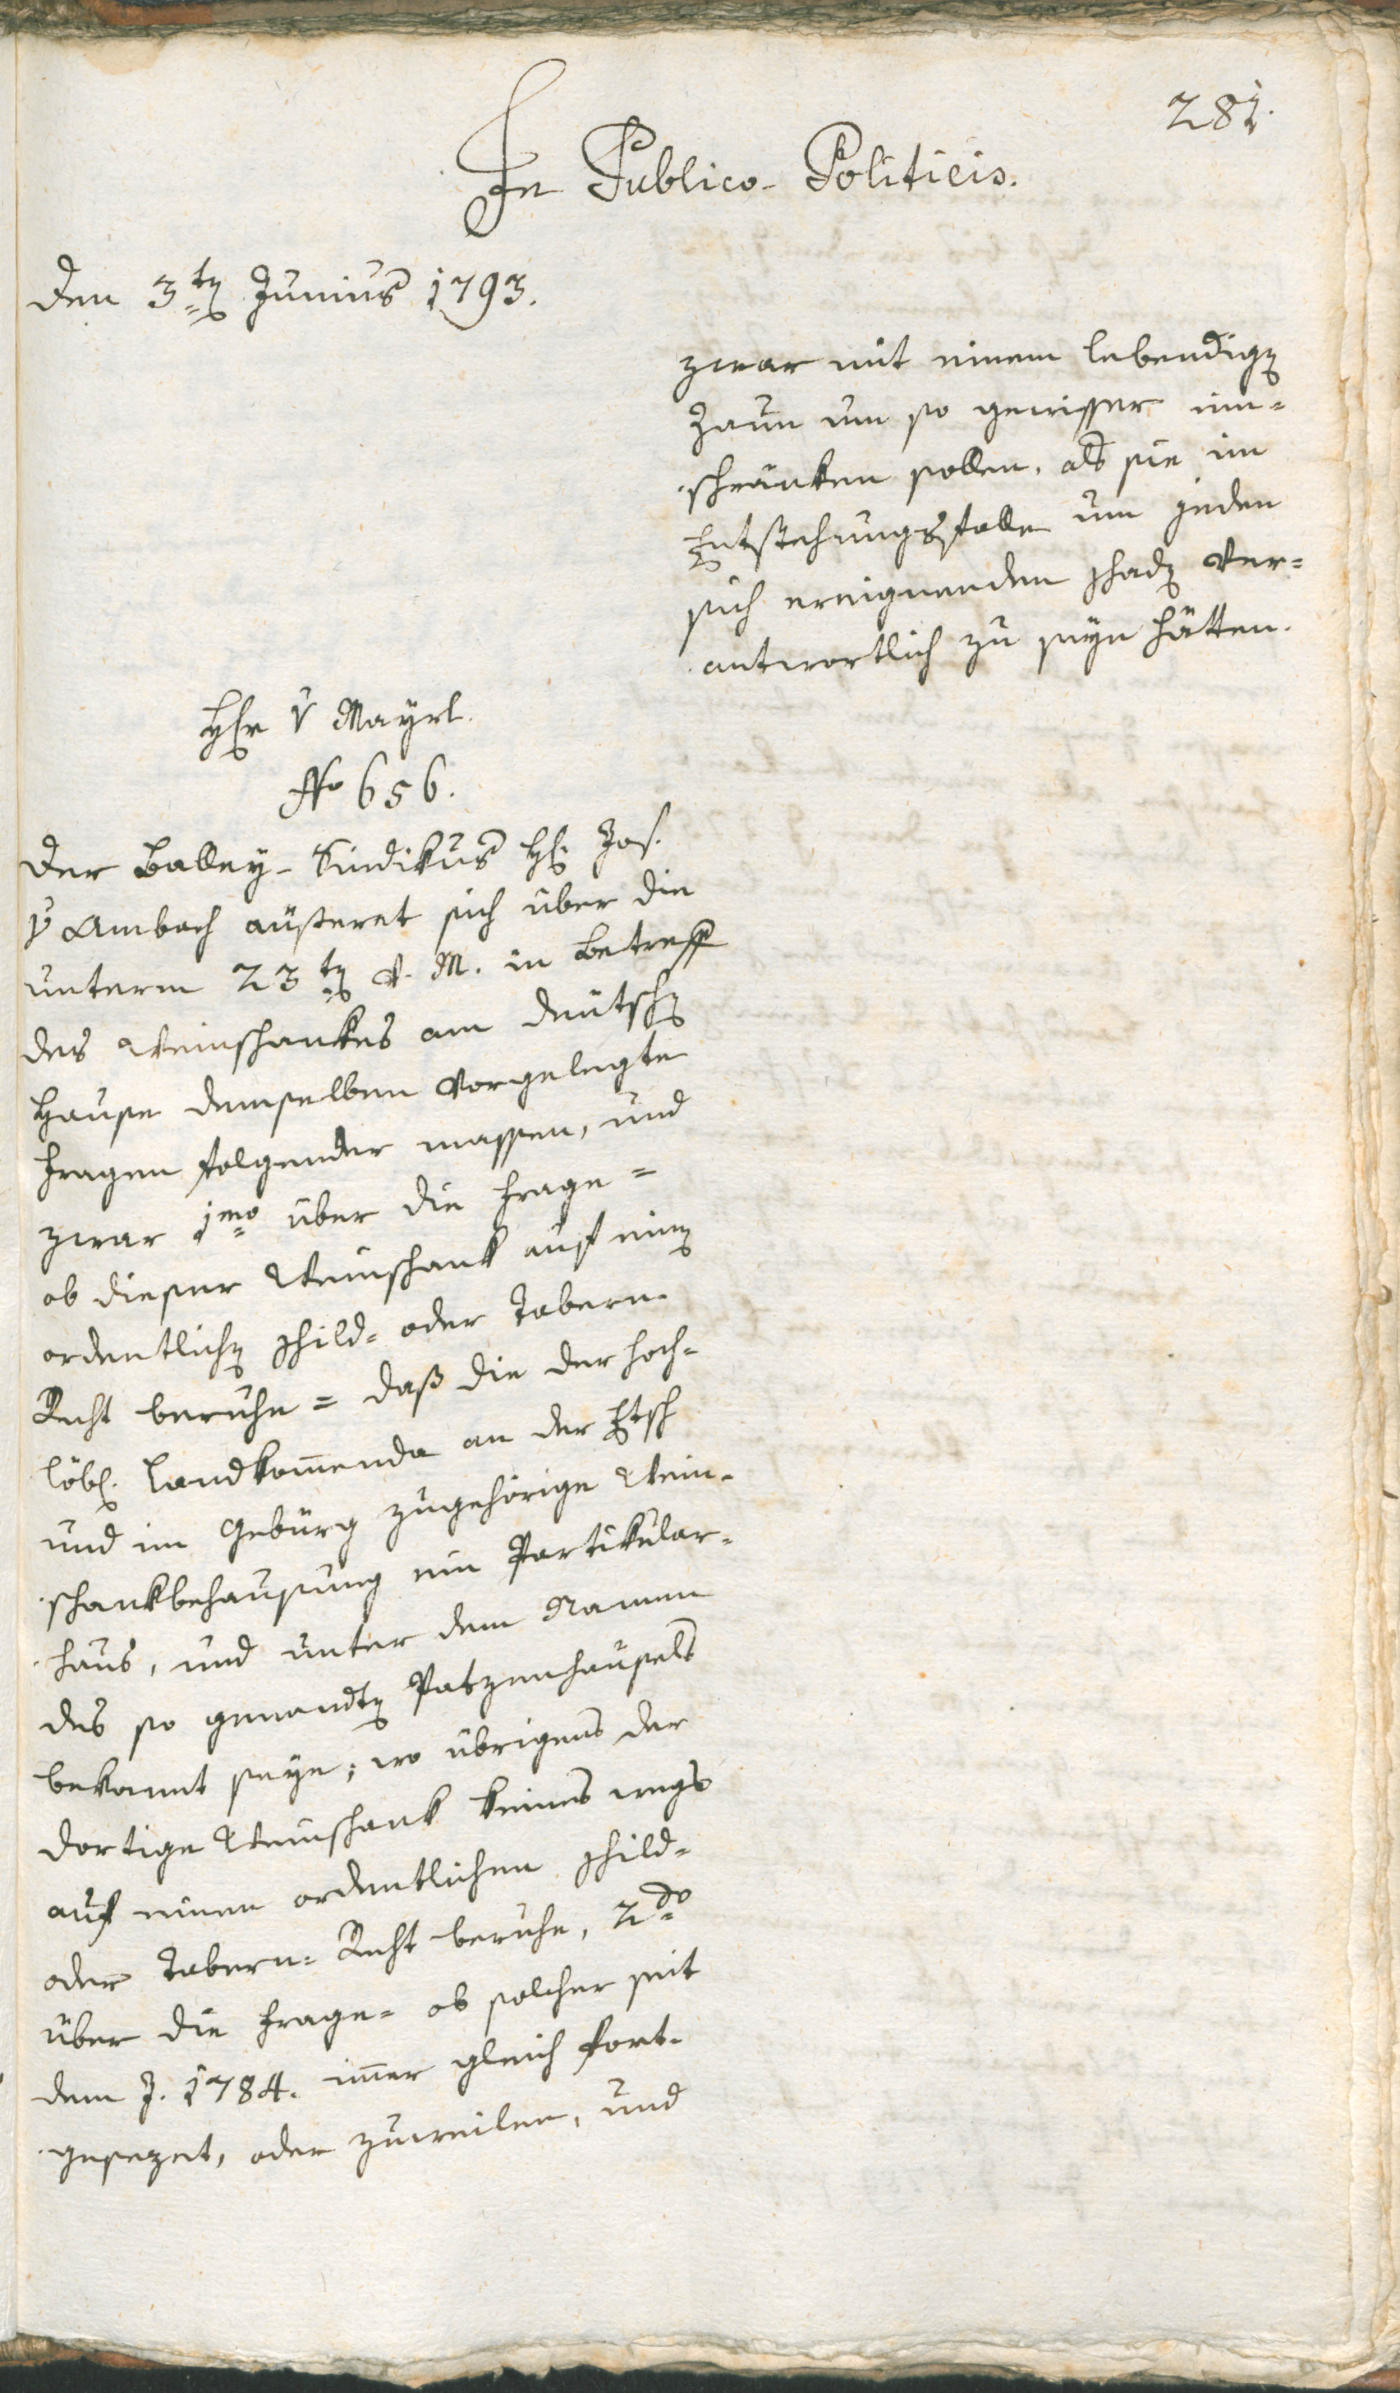 281.
In Publico-Politicis.
Den 3ten Junius 1793.
zwar mit einem lebendigen
Zaun um so gewisser ein-
schränken sollen, als sie im
Entstehungsfalle um jeden
sich ereignenden schaden ver-
antwortlich zu seyn hätten.
Herr v Mayrl.
No 656.
Der Balley-Sindikus H. Jos.
v Ambach äußeret sich über die
unterm 23ten v. M. in Betreff
des Weinschankes am deutschen
Hause demselben vorgelegte
Fragen folgender massen, und
zwar 1mo über die Frage =
ob dieser Weinschank auf einen
ordentlichen schild- oder Tabern-
Recht beruhe = daß die der hoch-
löbl. Landkom̅enda an der Etsch
und im Gebürg zugehörige Wein-
schankbehausung ein Partikular-
haus, und unter dem Namen
des so genandten Patzenhausels
bekannt seye; wo übrigens der
dortige Weinschank keines wegs
auf einen ordentlichen schild-
oder Tabern- Recht beruhe, 2do
über die Frage- ob solcher seit
dem J. 1784. im̅er gleich fort-
gesezet, oder zuweilen, und